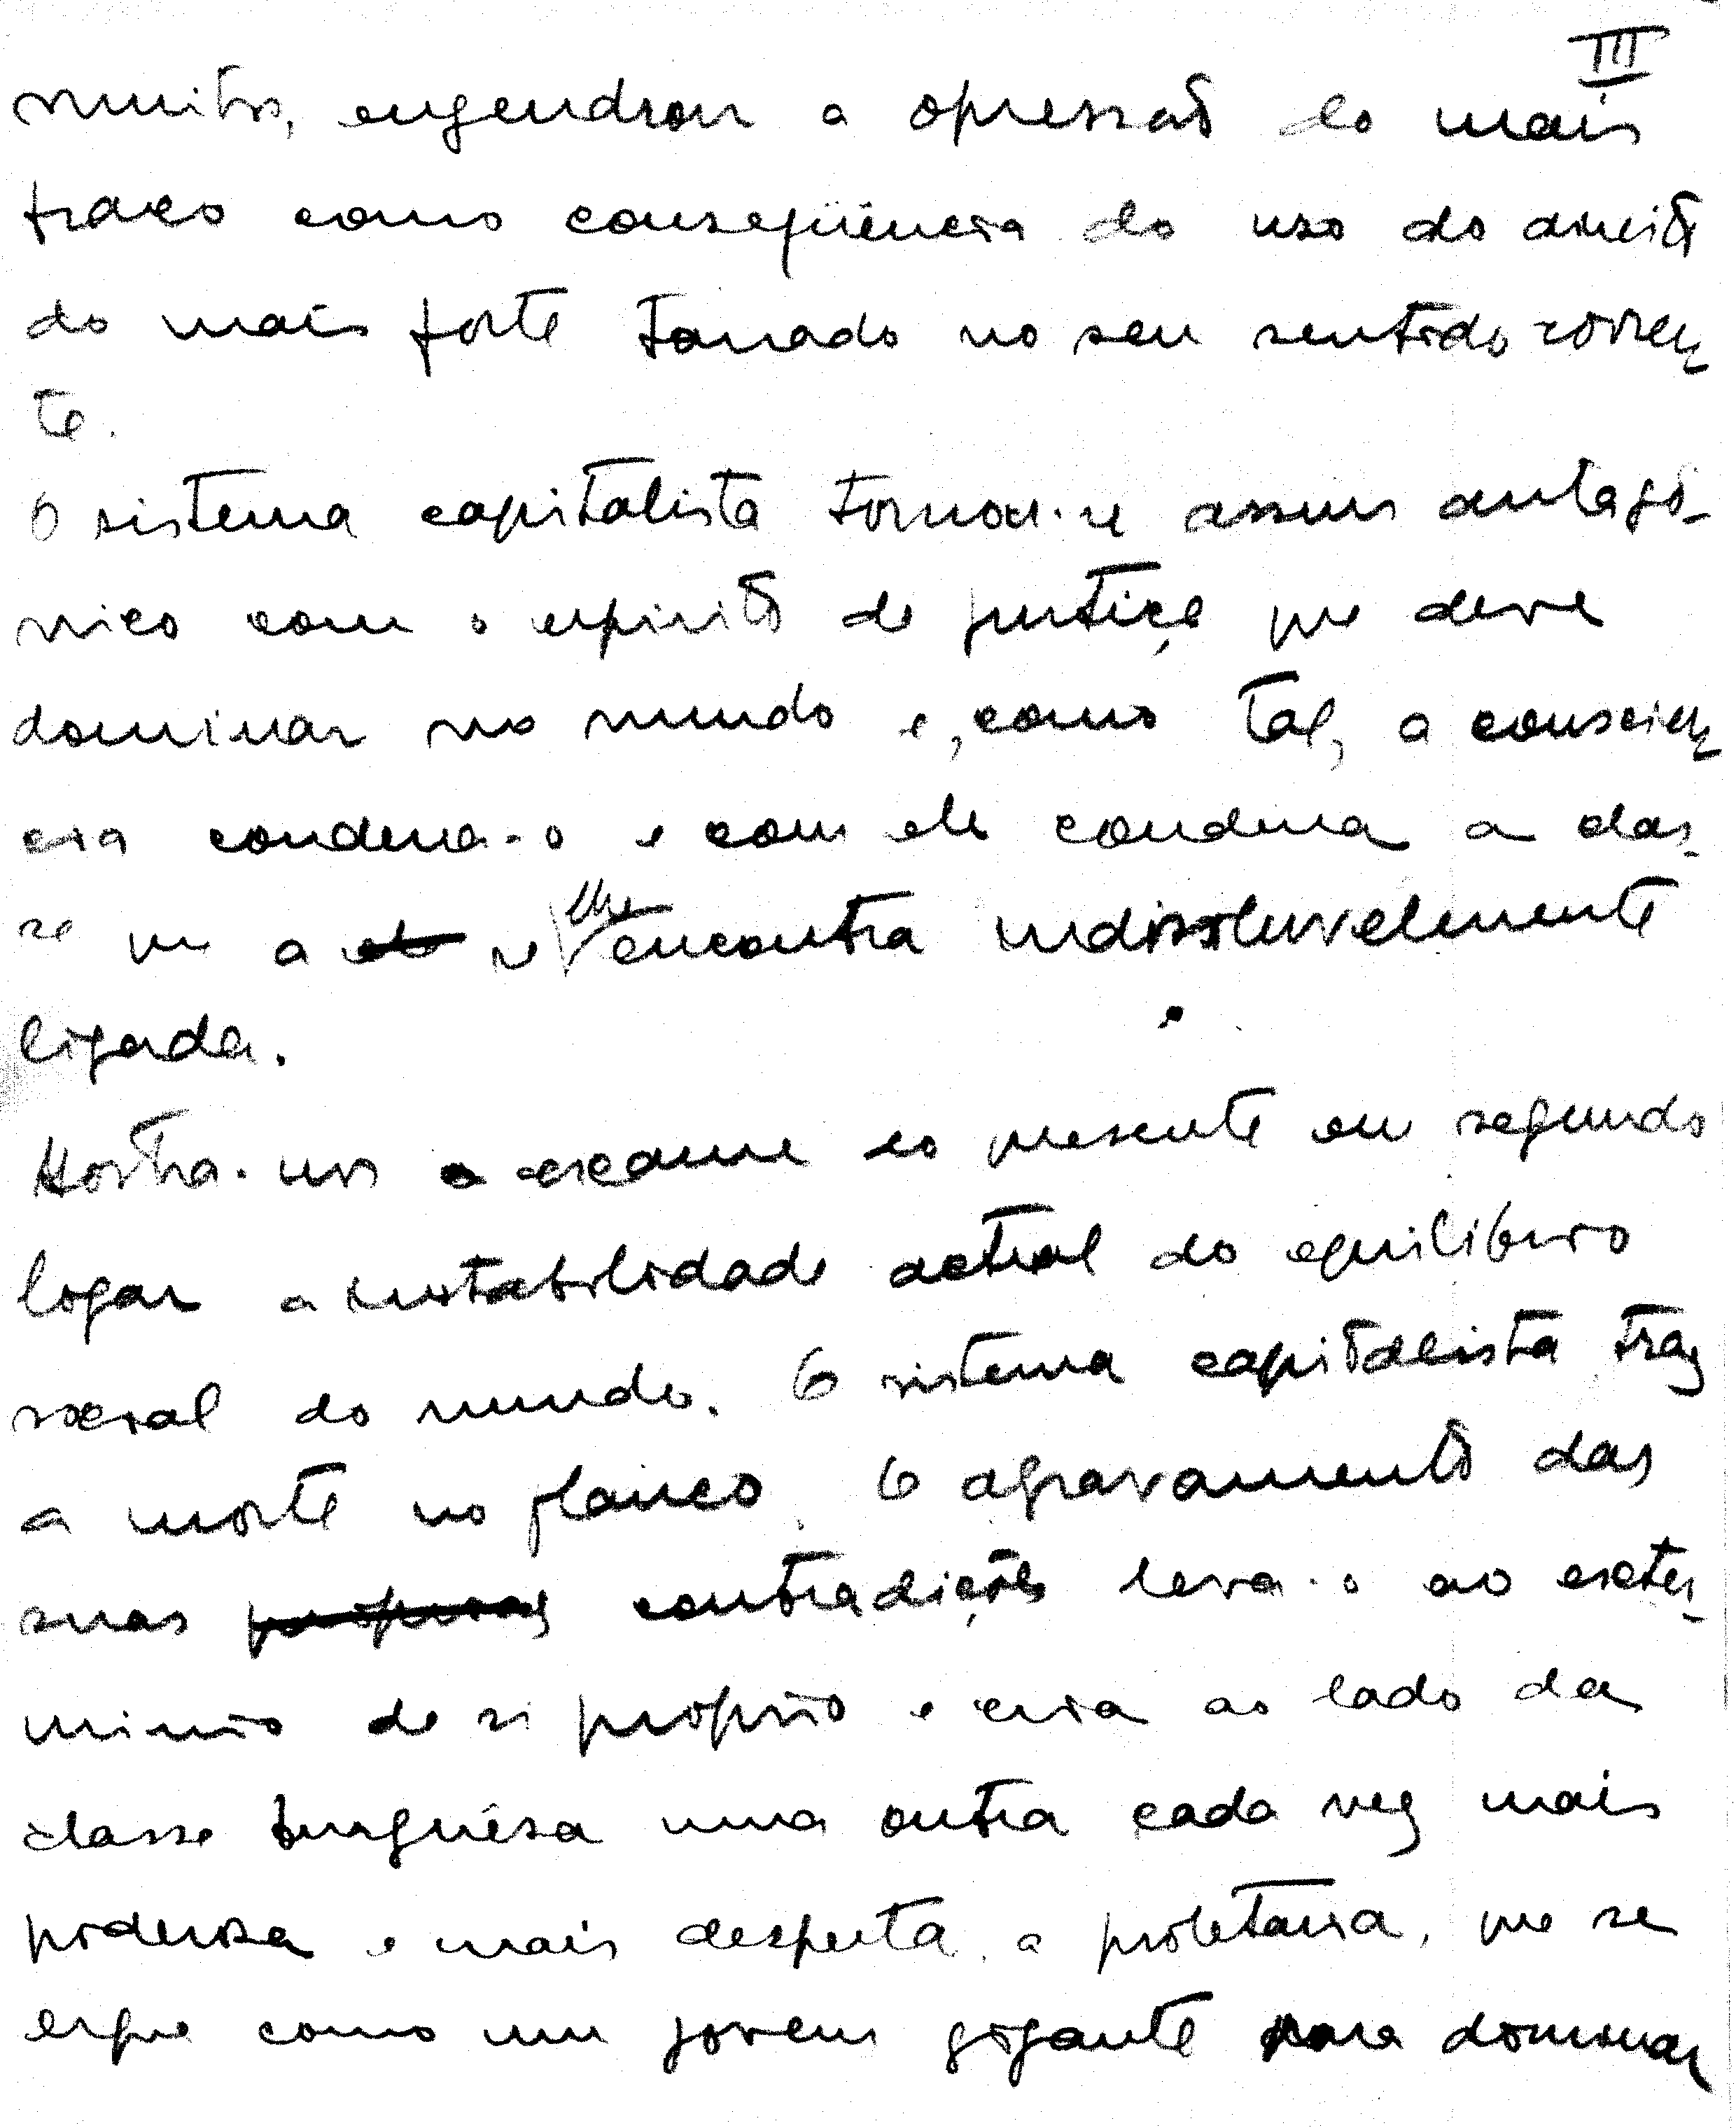 III
muitos, engendrou a opressão do mais
fraco como conseqüência do uso do direito
do mais forte tomado no seu sentido corren
te.
O sistema capitalista tornou-se assim antagó-
nico com o espirito de justiça que deve
dominar no mundo e, como tal, a conscien
cia condena-o e com ele condena a clas-
se que a ele se lhe encontra indissoluvelmente
ligada.
Mostra-nos o exame do presente em segundo
logar a instabilidade actual do equilibrio
social do mundo. O sistema capitalista traz
a morte no flanco. O agravamento das
suas proprias contradições leva-o ao exter-
minio de si próprio e cria ao lado da
classe burguêsa uma outra cada vez mais
poderosa e mais desperta, a proletaria, que se
ergue como um jovem gigante para dominar